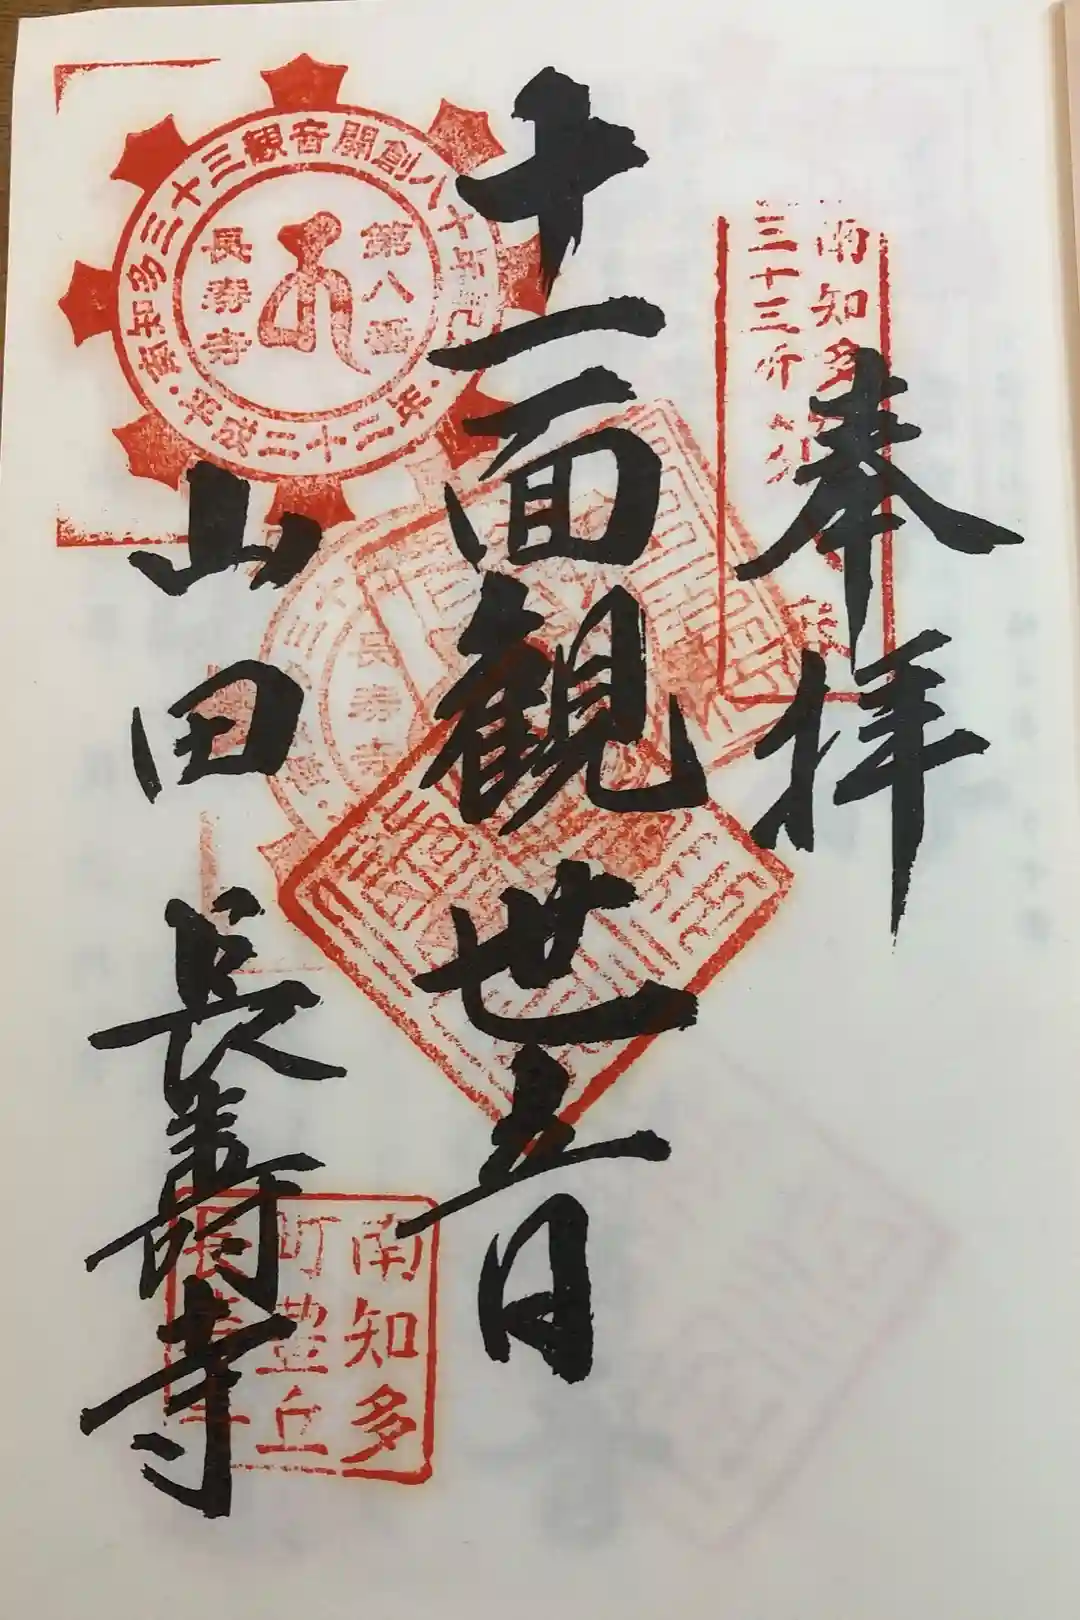 奉拝
十一面観世音
山田
長寿寺
南知多
三十三所
南知多三十三観音開創八十年記念
平成二十二年
第八番
長寿寺
長寿寺
南知多
町豊丘
長寿寺